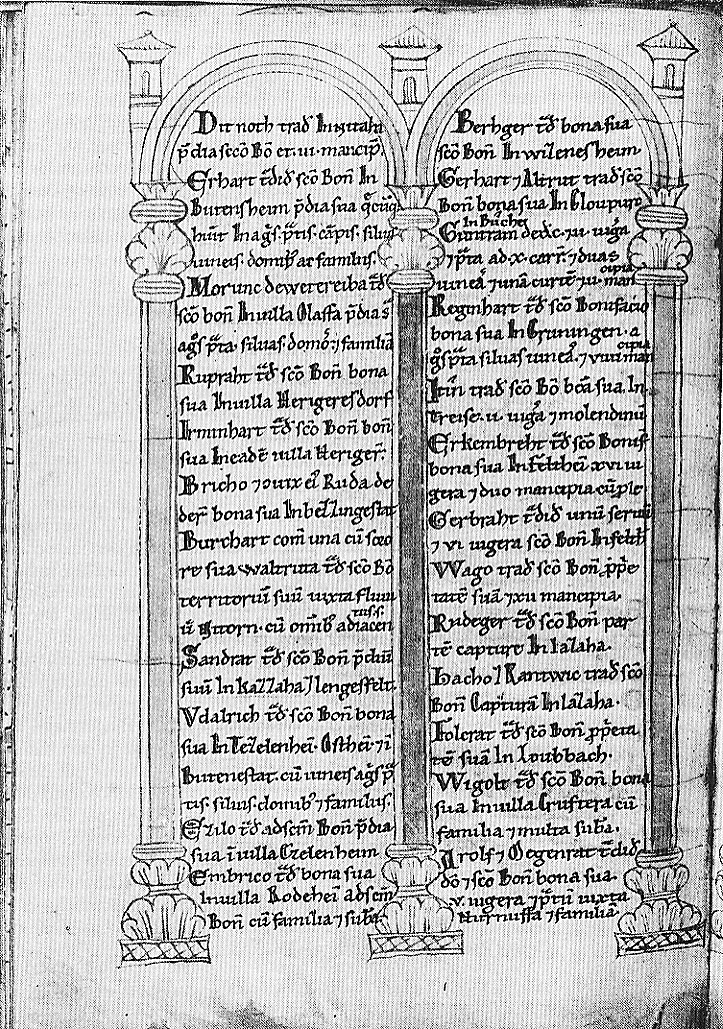 Ditnoth trad̄ In
p̄dia sc̄o Bō et ·ui· mancip̄.
Erhart t̄did sc̄o Bon̄ In
Butensheim p̄dia sua
hūt In ag̃s· p̃tis· cāpis· siluis
uineis· domib; ac familiis·
Morunc dewetereiba t̄d̄
sc̄o bon̄ Inuilla Claffa p̄dia
ag̃s p̃ta· siluas· domō· ⁊ familiā
Rupraht t̄d̄ sc̄o Bon̄ bona
sua Inuilla Herigeresdorf
Irminhart t̄d̄ sc̄o Bon̄ bon̄
sua Ineadē uilla Heriger̄:
Bricho ⁊ Ruda de
der̄ bona sua Inbellingestat
Burchart com̄ una cū
re sua waltrata t̄d̄ sc̄o Bō
territoriū suū iuxta flum
cū om̄ib; adiacen
tiis·
Sandrat t̄d̄ sc̄o Bon̄ p̄diū
suū In Kazlaha ⁊ lengesfelt·
Vdalrich t̄d̄ sc̄o Bon̄ bona
sua In
Butenestat· cū uineis ag̃s p̃
tis· siluis· domib; ⁊ familiis·
Ezilo t̄d̄ ad sc̄m̄ Bon̄ p̄dia
sua ī uilla Ezelenheim
Embrico t̄d̄ bona sua
Inuilla Rodeheī ad sc̄m
Bon̄ cū familia ⁊ sub̄a·
Berhger t̄d̄ bona sua
sc̄o Bon̄ In wilenesheim·
Gerhart ⁊ Altrut trad̄ sc̄o
Bon̄ bona sua In
In Buchē
Guntram dedit ·iii· iug̃a
⁊ p̃ta ad ·x· carr̄· ⁊ duas
cipia
uineā ⁊ unā curtē ⁊ man
Reginhart t̄d̄ sc̄o Bonifacio
bona sua In Gruningen· a
g̃s p̃ta siluas uineā· ⁊ man
cipia
trad̄ sc̄o Bō bōa sua· In
treise· ii· iug̃a ⁊ molendinū
Erkembreht t̄d̄ sc̄o Bonif̄
bona sua In felthei xvi iu
gera ⁊ duo mancipia
Gerbraht t̄did unū seruū
⁊ vi iugera sc̄o Bon̄ In
Wago trad̄ sc̄o Bon̄ p̄p̃e
tatē suā ⁊ xii mancipia·
Rudeger t̄d̄ sc̄o Bon̄ par
tē capture In lalaha·
Hacho ⁊ Rantwic trad̄ sc̄o
Bon̄ Capturā In lalaha·
Folcrat t̄d̄ sc̄o Bon̄ p̄p̃eta
tē suā In Loubbach·
Wigolt t̄d̄ sc̄o Bon̄ bona
sua Inuilla Cruftera cū
familia ⁊ multa sub̄a·
Arolf ⁊ Megenrat t̄did̄
dō ⁊ sc̄o Bon̄ bona sua·
v· iugera ⁊ p̃tū iuxta
Nurnuffa ⁊ familiā